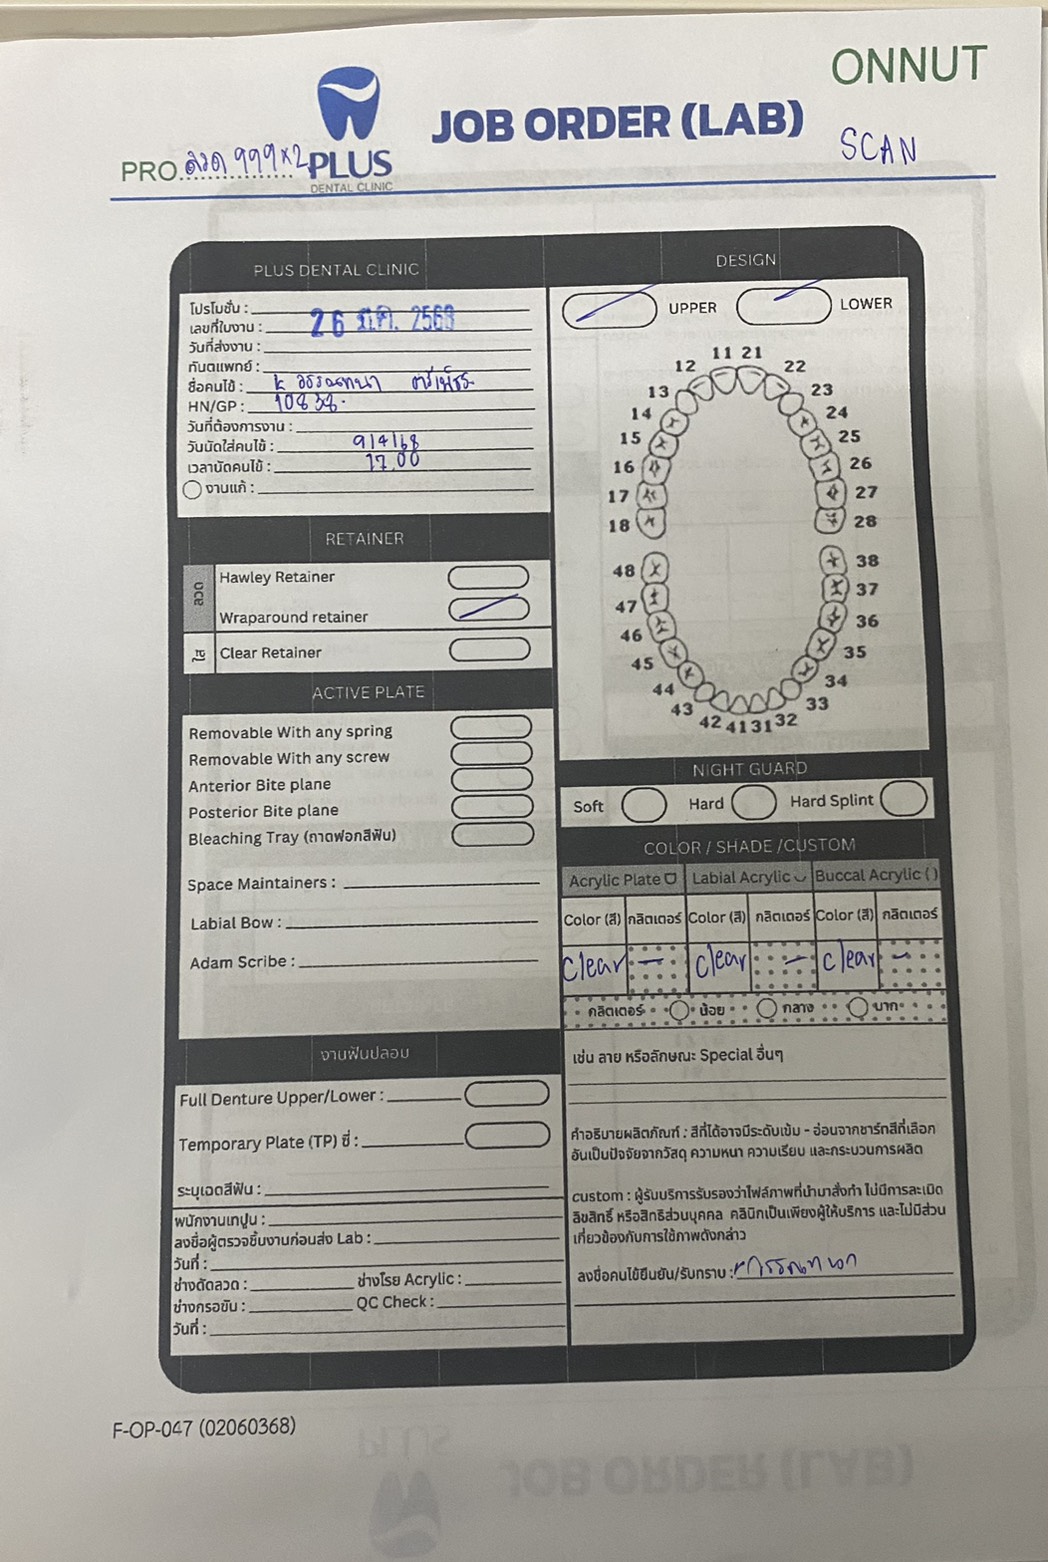 ONNUT
JOB ORDER (LAB)
SCAN
PRO. ลวด 999x2
PLUS
DENTAL CLINIC
PLUS DENTAL CLINIC
โปรโมชั่น :
เลขที่ใบงาน : 26 มี.ค. 2568
วันที่ส่งงาน :
ทันตแพทย์ :
ชื่อคนไข้ : K
HN/GP :
วันที่ต้องการงาน :
วันนัดใส่คนไข้ : 9/4/68
เวลานัดคนไข้ : 17.00
งานแก้ :
RETAINER
ลวด
Hawley Retainer
Wraparound retainer
ใส
Clear Retainer
ACTIVE PLATE
Removable With any spring
Removable With any screw
Anterior Bite plane
Posterior Bite plane
Bleaching Tray (ถาดฟอกสีฟัน)
Space Maintainers :
Labial Bow :
Adam Scribe :
งานฟันปลอม
Full Denture Upper/Lower :
Temporary Plate (TP) ซี่ :
ระบุเฉดสีฟัน :
พนักงานเทปูน :
ลงชื่อผู้ตรวจชิ้นงานก่อนส่ง Lab :
วันที่ :
ช่างดัดลวด : ช่างโรย Acrylic :
ช่างกรอขัน : QC Check :
วันที่ :
DESIGN
UPPER LOWER
11 21
12 22
13 23
14 24
15 25
16 26
17 27
18 28
48 38
47 37
46 36
45 35
44 34
43 33
42 41 31 32
NIGHT GUARD
Soft Hard Hard Splint
COLOR / SHADE /CUSTOM
Acrylic Plate Labial Acrylic Buccal Acrylic ( )
Color (สี) กลิตเตอร์ Color (สี) กลิตเตอร์ Color (สี) กลิตเตอร์
Clear - Clear - Clear -
กลิตเตอร์ น้อย กลาง มาก
เช่น ลาย หรือลักษณะ Special อื่นๆ
คำอธิบายผลิตภัณฑ์ : สีที่ได้อาจมีระดับเข้ม - อ่อนจากชาร์ทสีที่เลือก
อันเป็นปัจจัยจากวัสดุ ความหนา ความเรียบ และกระบวนการผลิต
custom : ผู้รับบริการรับรองว่าไฟล์ภาพที่นำมาสั่งทำ ไม่มีการละเมิด
ลิขสิทธิ์ หรือสิทธิส่วนบุคคล คลินิกเป็นเพียงผู้ให้บริการ และไม่มีส่วน
เกี่ยวข้องกับการใช้ภาพดังกล่าว
ลงชื่อคนไข้ยืนยัน/รับทราบ :
F-OP-047 (02060368)